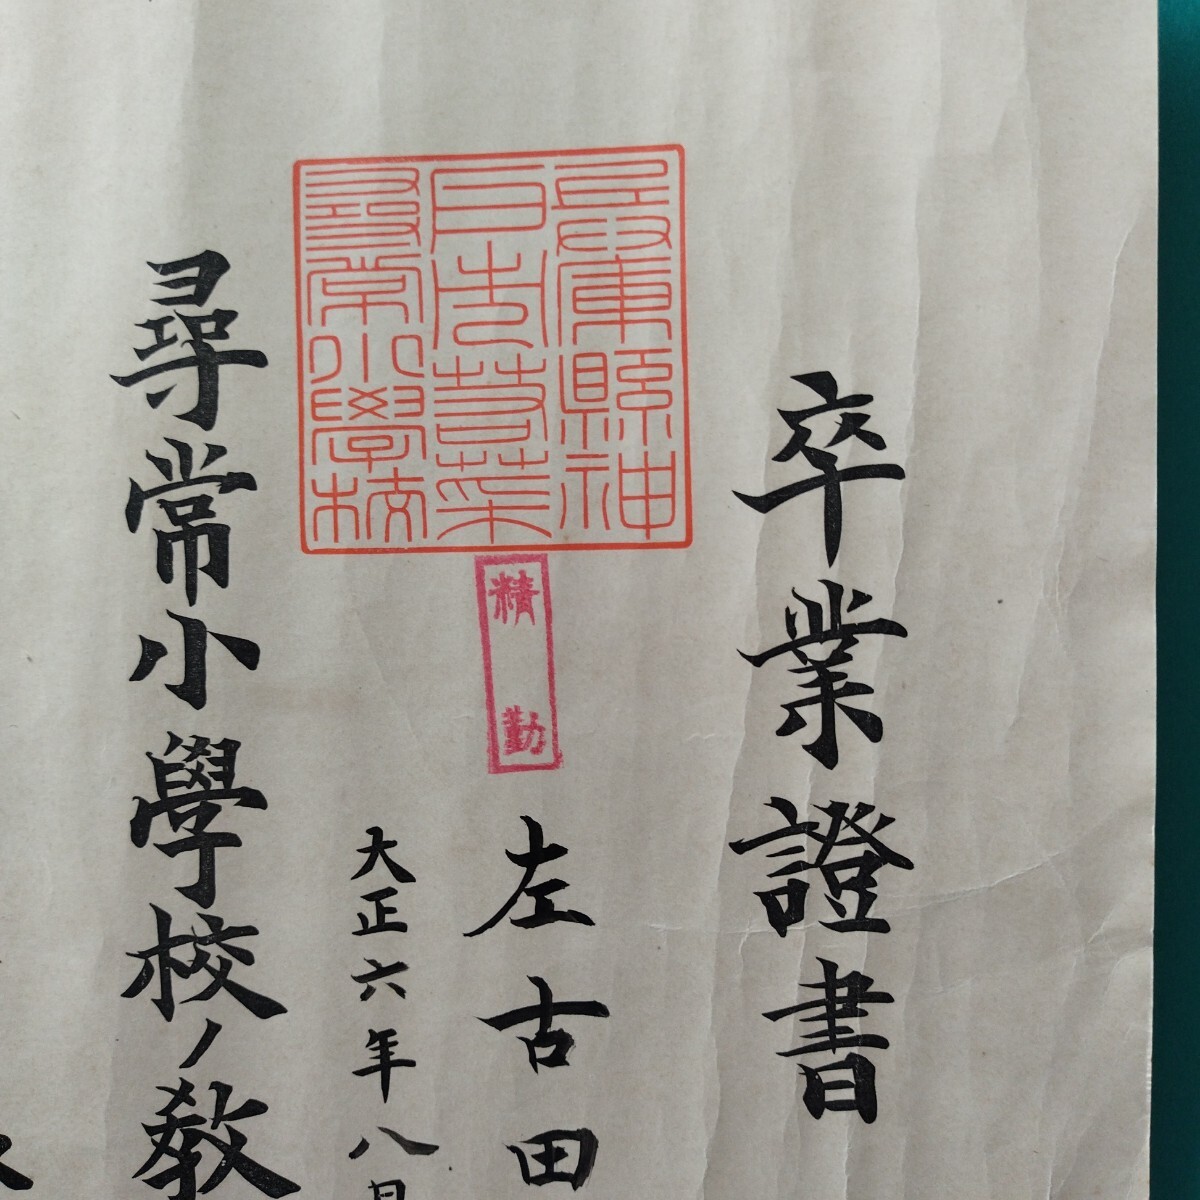 卒業證書
兵庫縣神
戸市若菜
尋常小學校
精勤
左古田
大正六年八月
尋常小學校ノ教